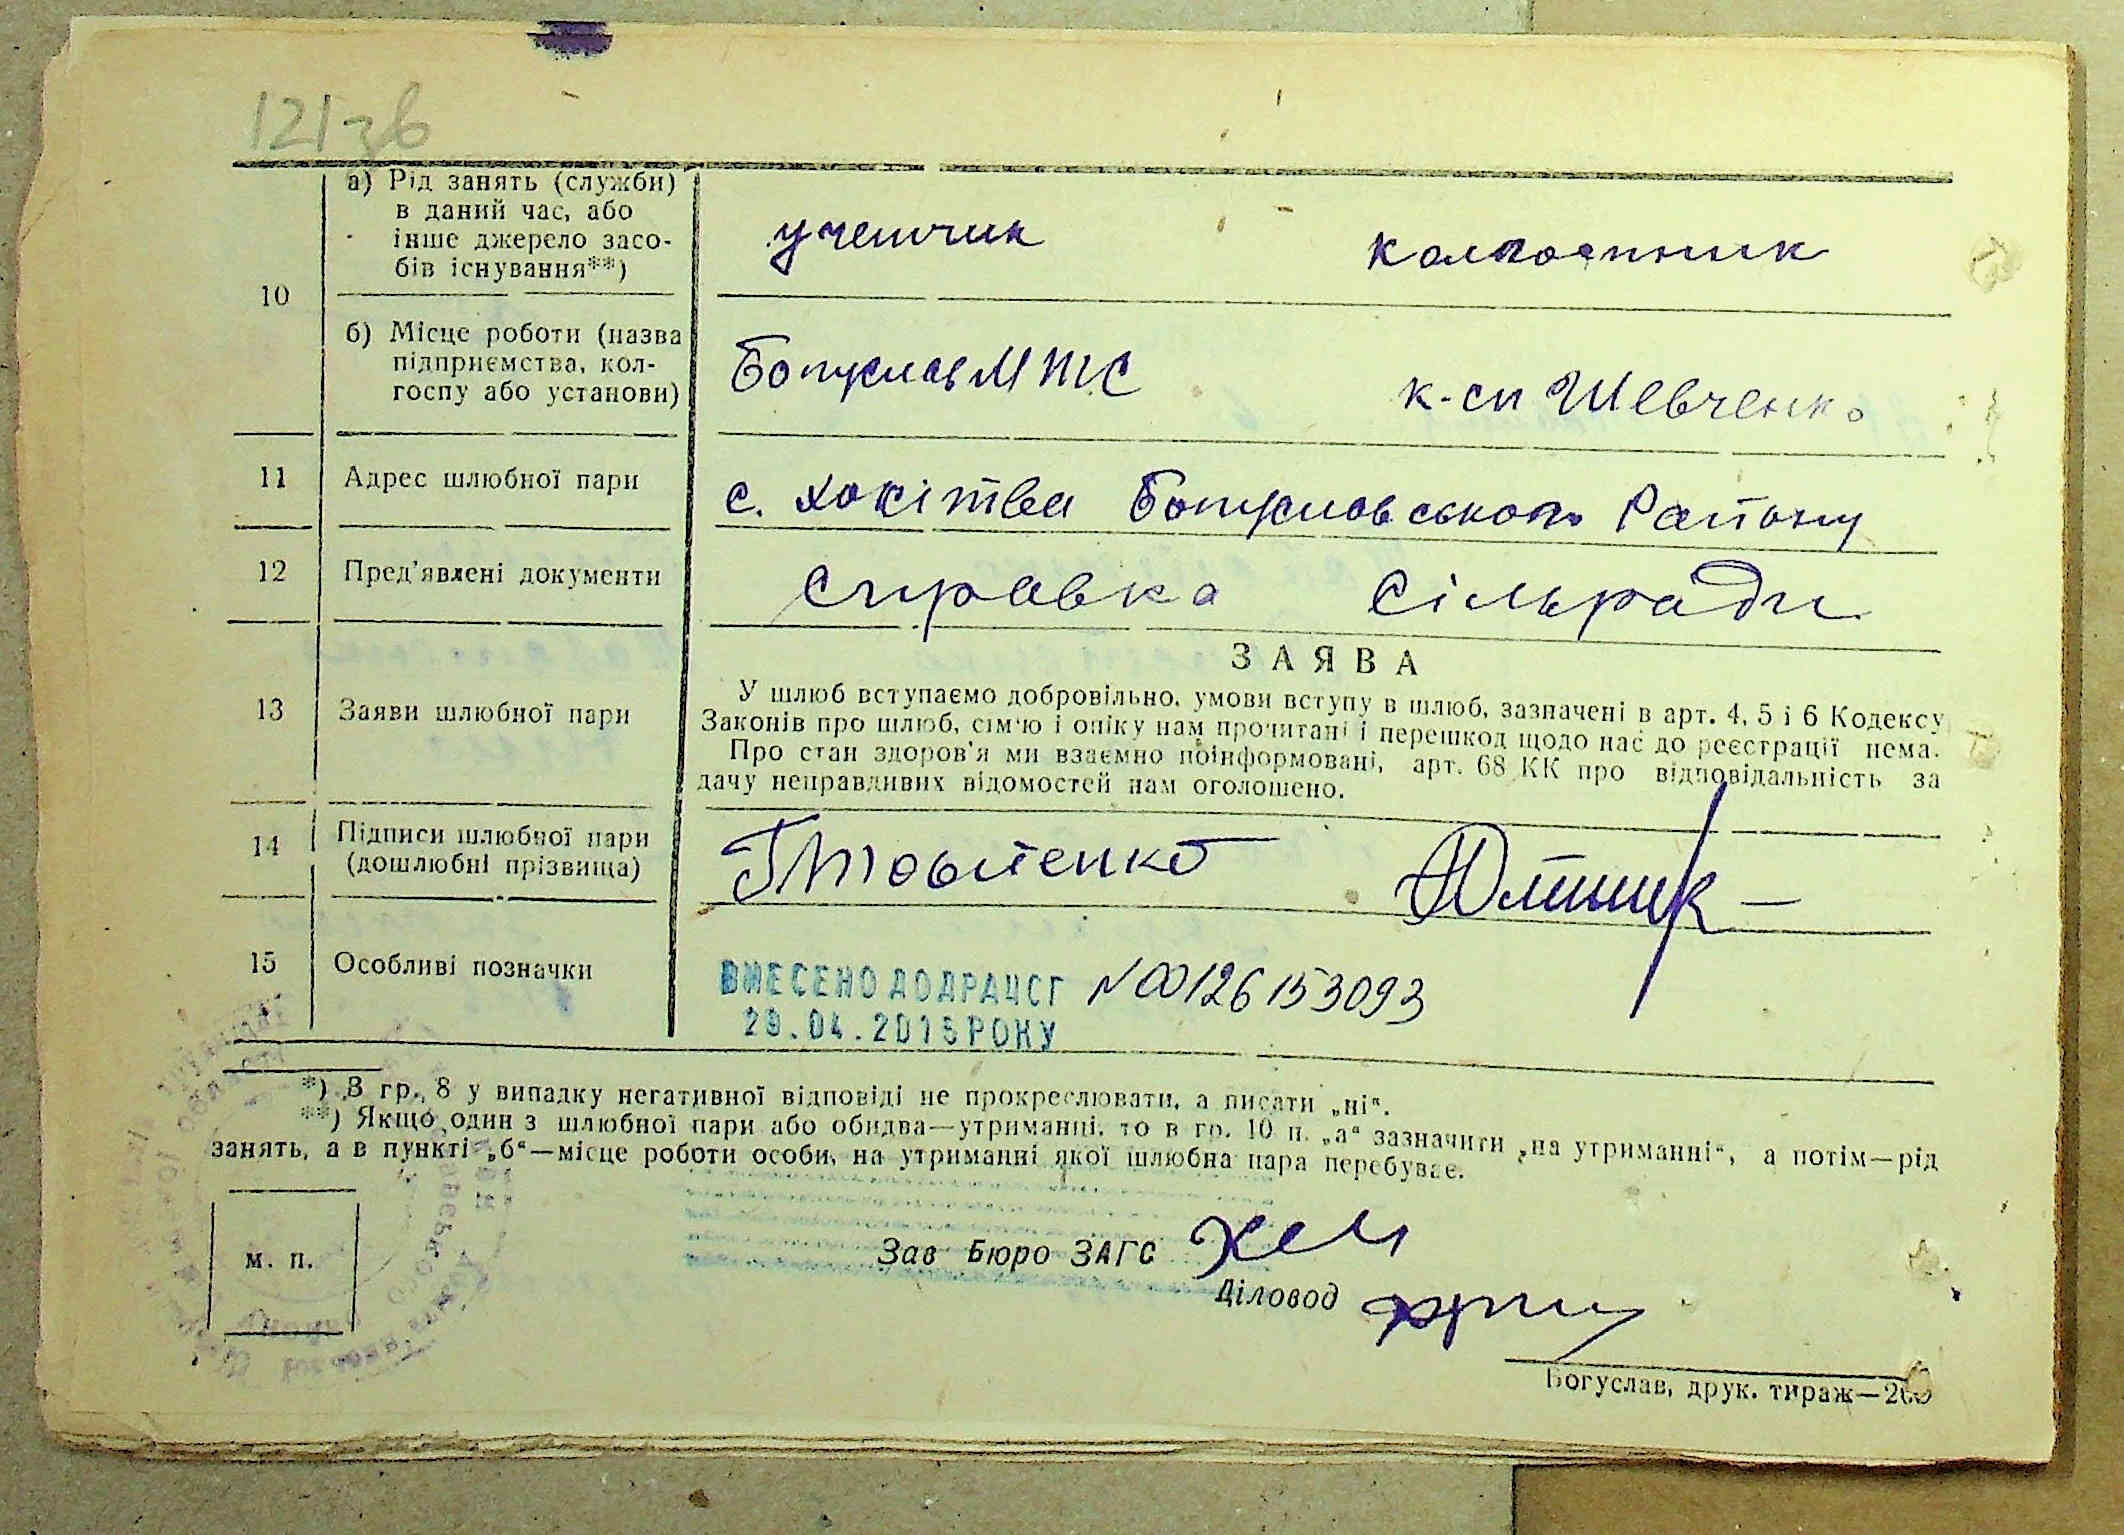 121зв
10
а) Рід занять (служби)
в даний час, або
інше джерело засо-
бів існування**)
учетчик
колгоспник
б) Місце роботи (назва
підприємства, кол-
госпу або установи)
Богуслав МТС
к-сп Шевченко
11
Адрес шлюбної пари
с. Хохітва Богуславського Району
12
Пред'явлені документи
Справка Сільради
13
Заяви шлюбної пари
ЗАЯВА
У шлюб вступаємо добровільно, умови вступу в шлюб, зазначені в арт. 4, 5 і 6 Кодексу
Законів про шлюб, сім'ю і опіку нам прочитані і перешкод щодо нас до реєстрації нема.
Про стан здоров'я ми взаємно поінформовані, арт. 68 КК про відповідальність за
дачу неправдивих відомостей нам оголошено.
14
Підписи шлюбної пари
(дошлюбні прізвища)
15
Особливі позначки
ВНЕСЕНО ДО ДРАЦСГ №00126153093
29.04.2015 РОКУ
*) В гр. 8 у випадку негативної відповіді не прокреслювати, а писати „ні“.
**) Якщо один з шлюбної пари або обидва—утриманці, то в гр. 10 п. „а“ зазначити „на утриманні“, а потім—рід
занять, а в пункті „б“—місце роботи особи, на утриманні якої шлюбна пара перебуває.
м. п.
Зав Бюро ЗАГС
Діловод
Богуслав, друк. тираж—